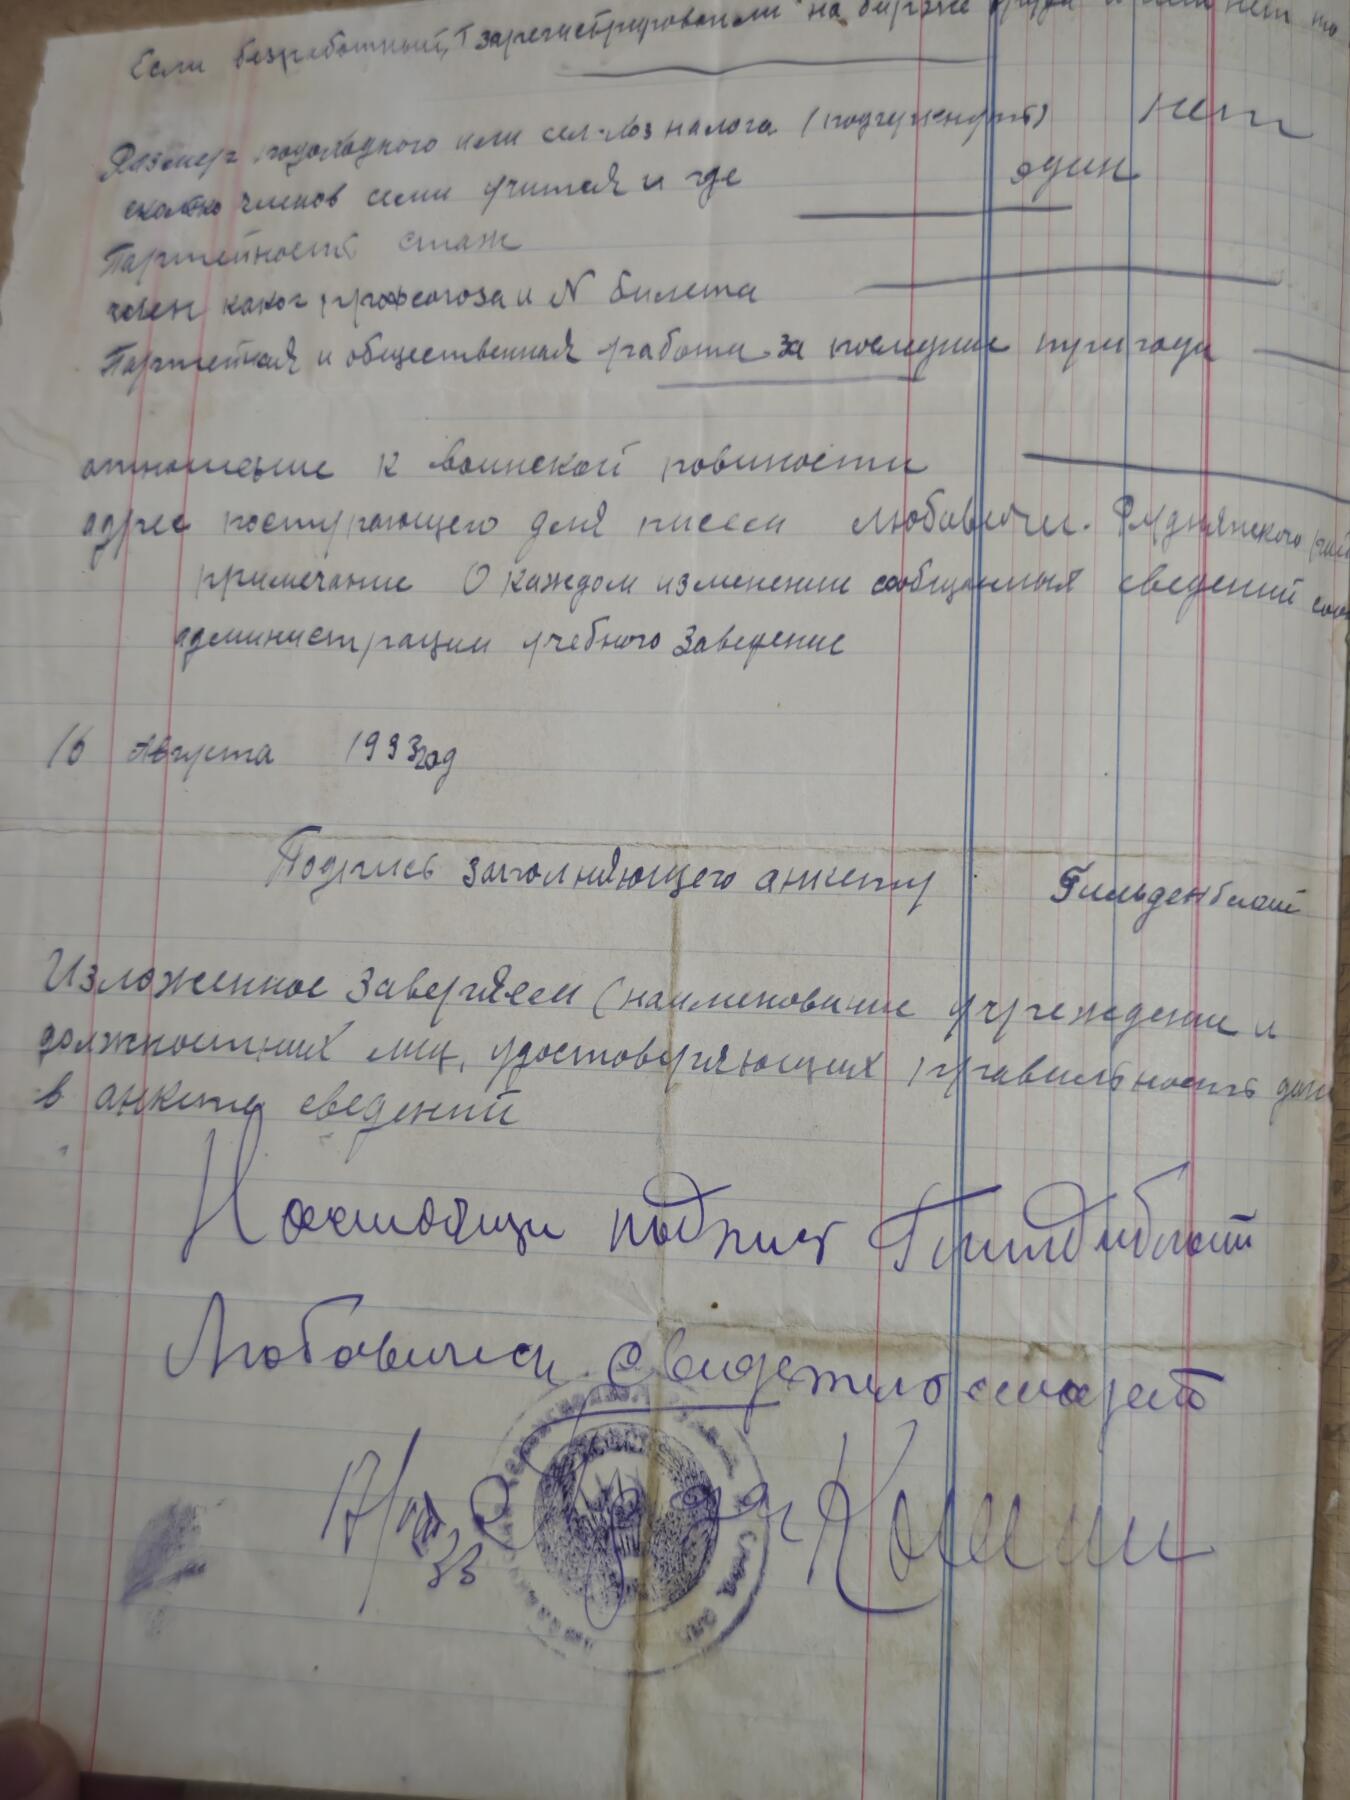 Если безработный, т зарегистрировани ли на бирже труда и если нет то
Размер подоходного или сел-хоз налога (подчеркнут) нет
сколко членов семи учится и где один
Партейност стаж
член каког профсоюза и N билета
Партейная и общественная работа за последние три года
отношение к воинской повиности
адрес поступающего для писем Любавичи. Руднянского рай
примечание О каждом изменении сообщаемыя сведений
администрации учебного заведение
16 Августа 1933 год
Подпись заполняющего анкету Гильденблат
Изложенное заверяем (наименование учреждение и
должностных лиц, удостоверяющих правильность дан
в анкете сведений
Настоящи подпис Гильденблат
Любавичски свидетелствует
17/ 33